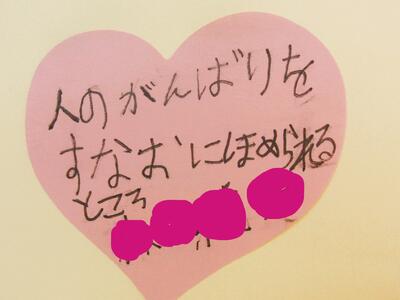 人のがんばりを
すなおにほめられる
ところ